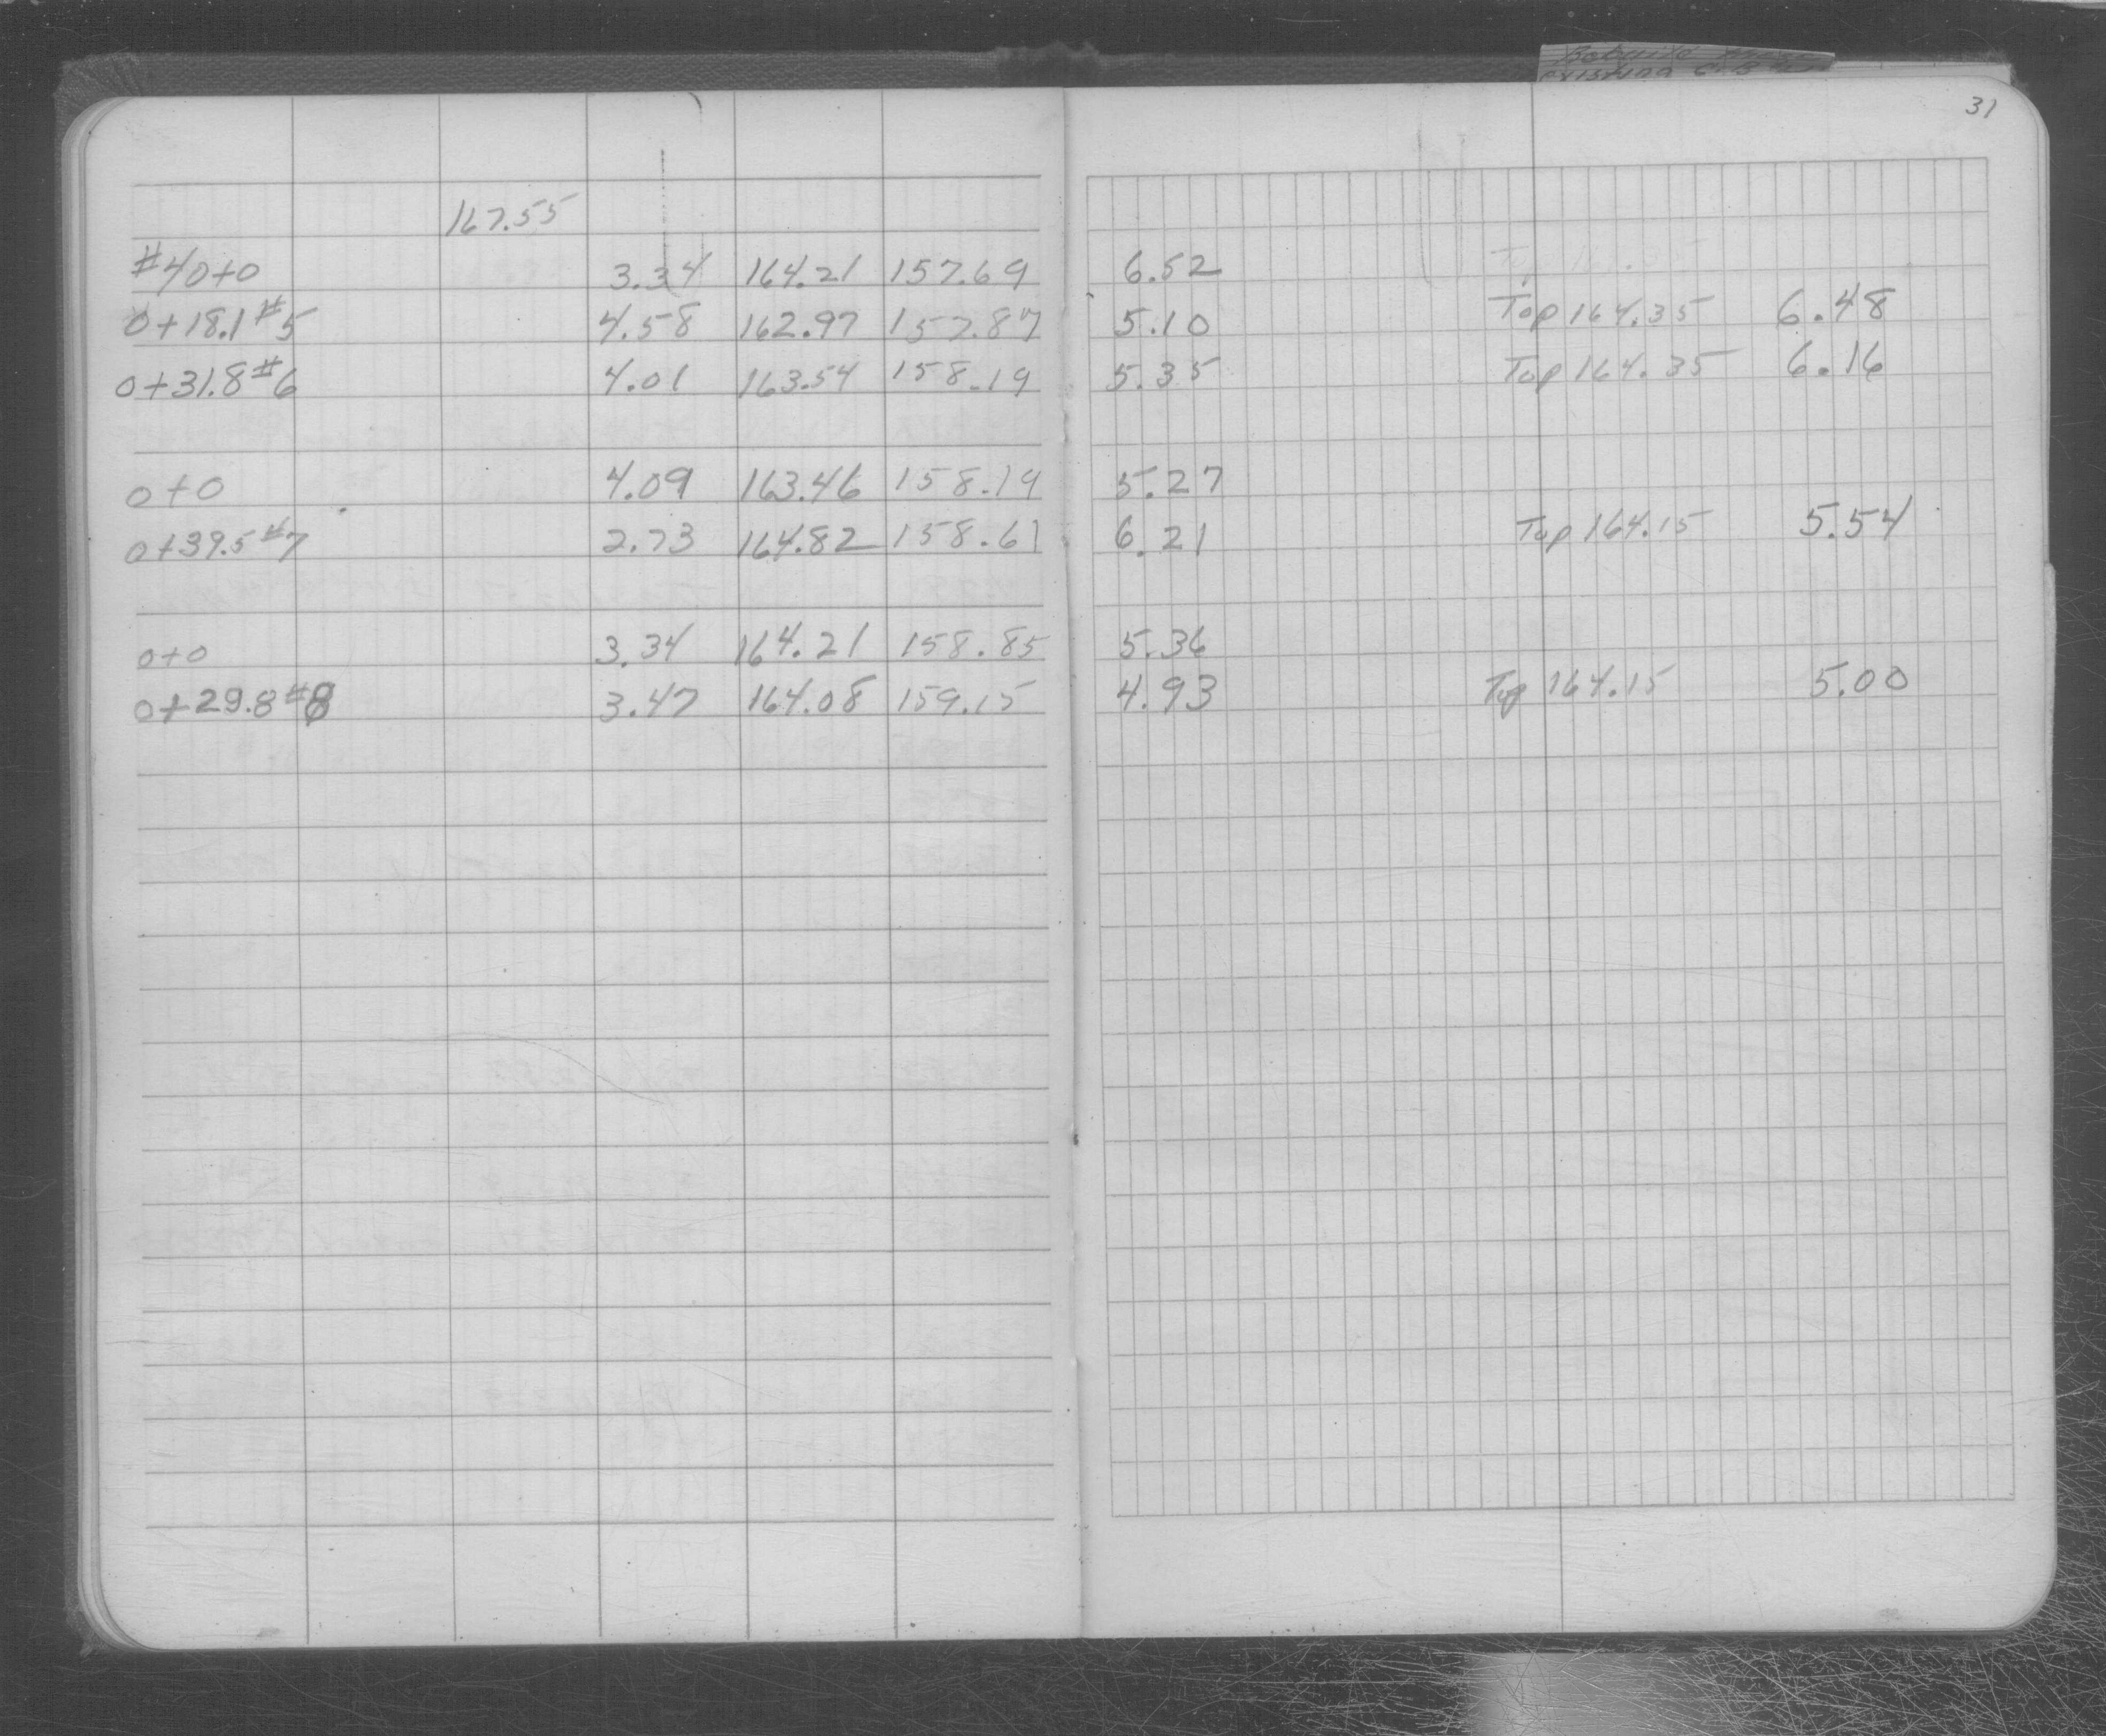 existing C.B.
31
167.55
#4 0+0 3.34 164.21 157.69 6.52
0+18.1 #5 4.58 162.97 157.87 5.10 Top 164.35 6.48
0+31.8 #6 4.01 163.54 158.19 5.35 Top 164.35 6.16
0+0 4.09 163.46 158.19 5.27
0+39.5 #7 2.73 164.82 158.61 6.21 Top 164.15 5.54
0+0 3.34 164.21 158.85 5.36
0+29.8 #8 3.47 164.08 159.15 4.93 Top 164.15 5.00